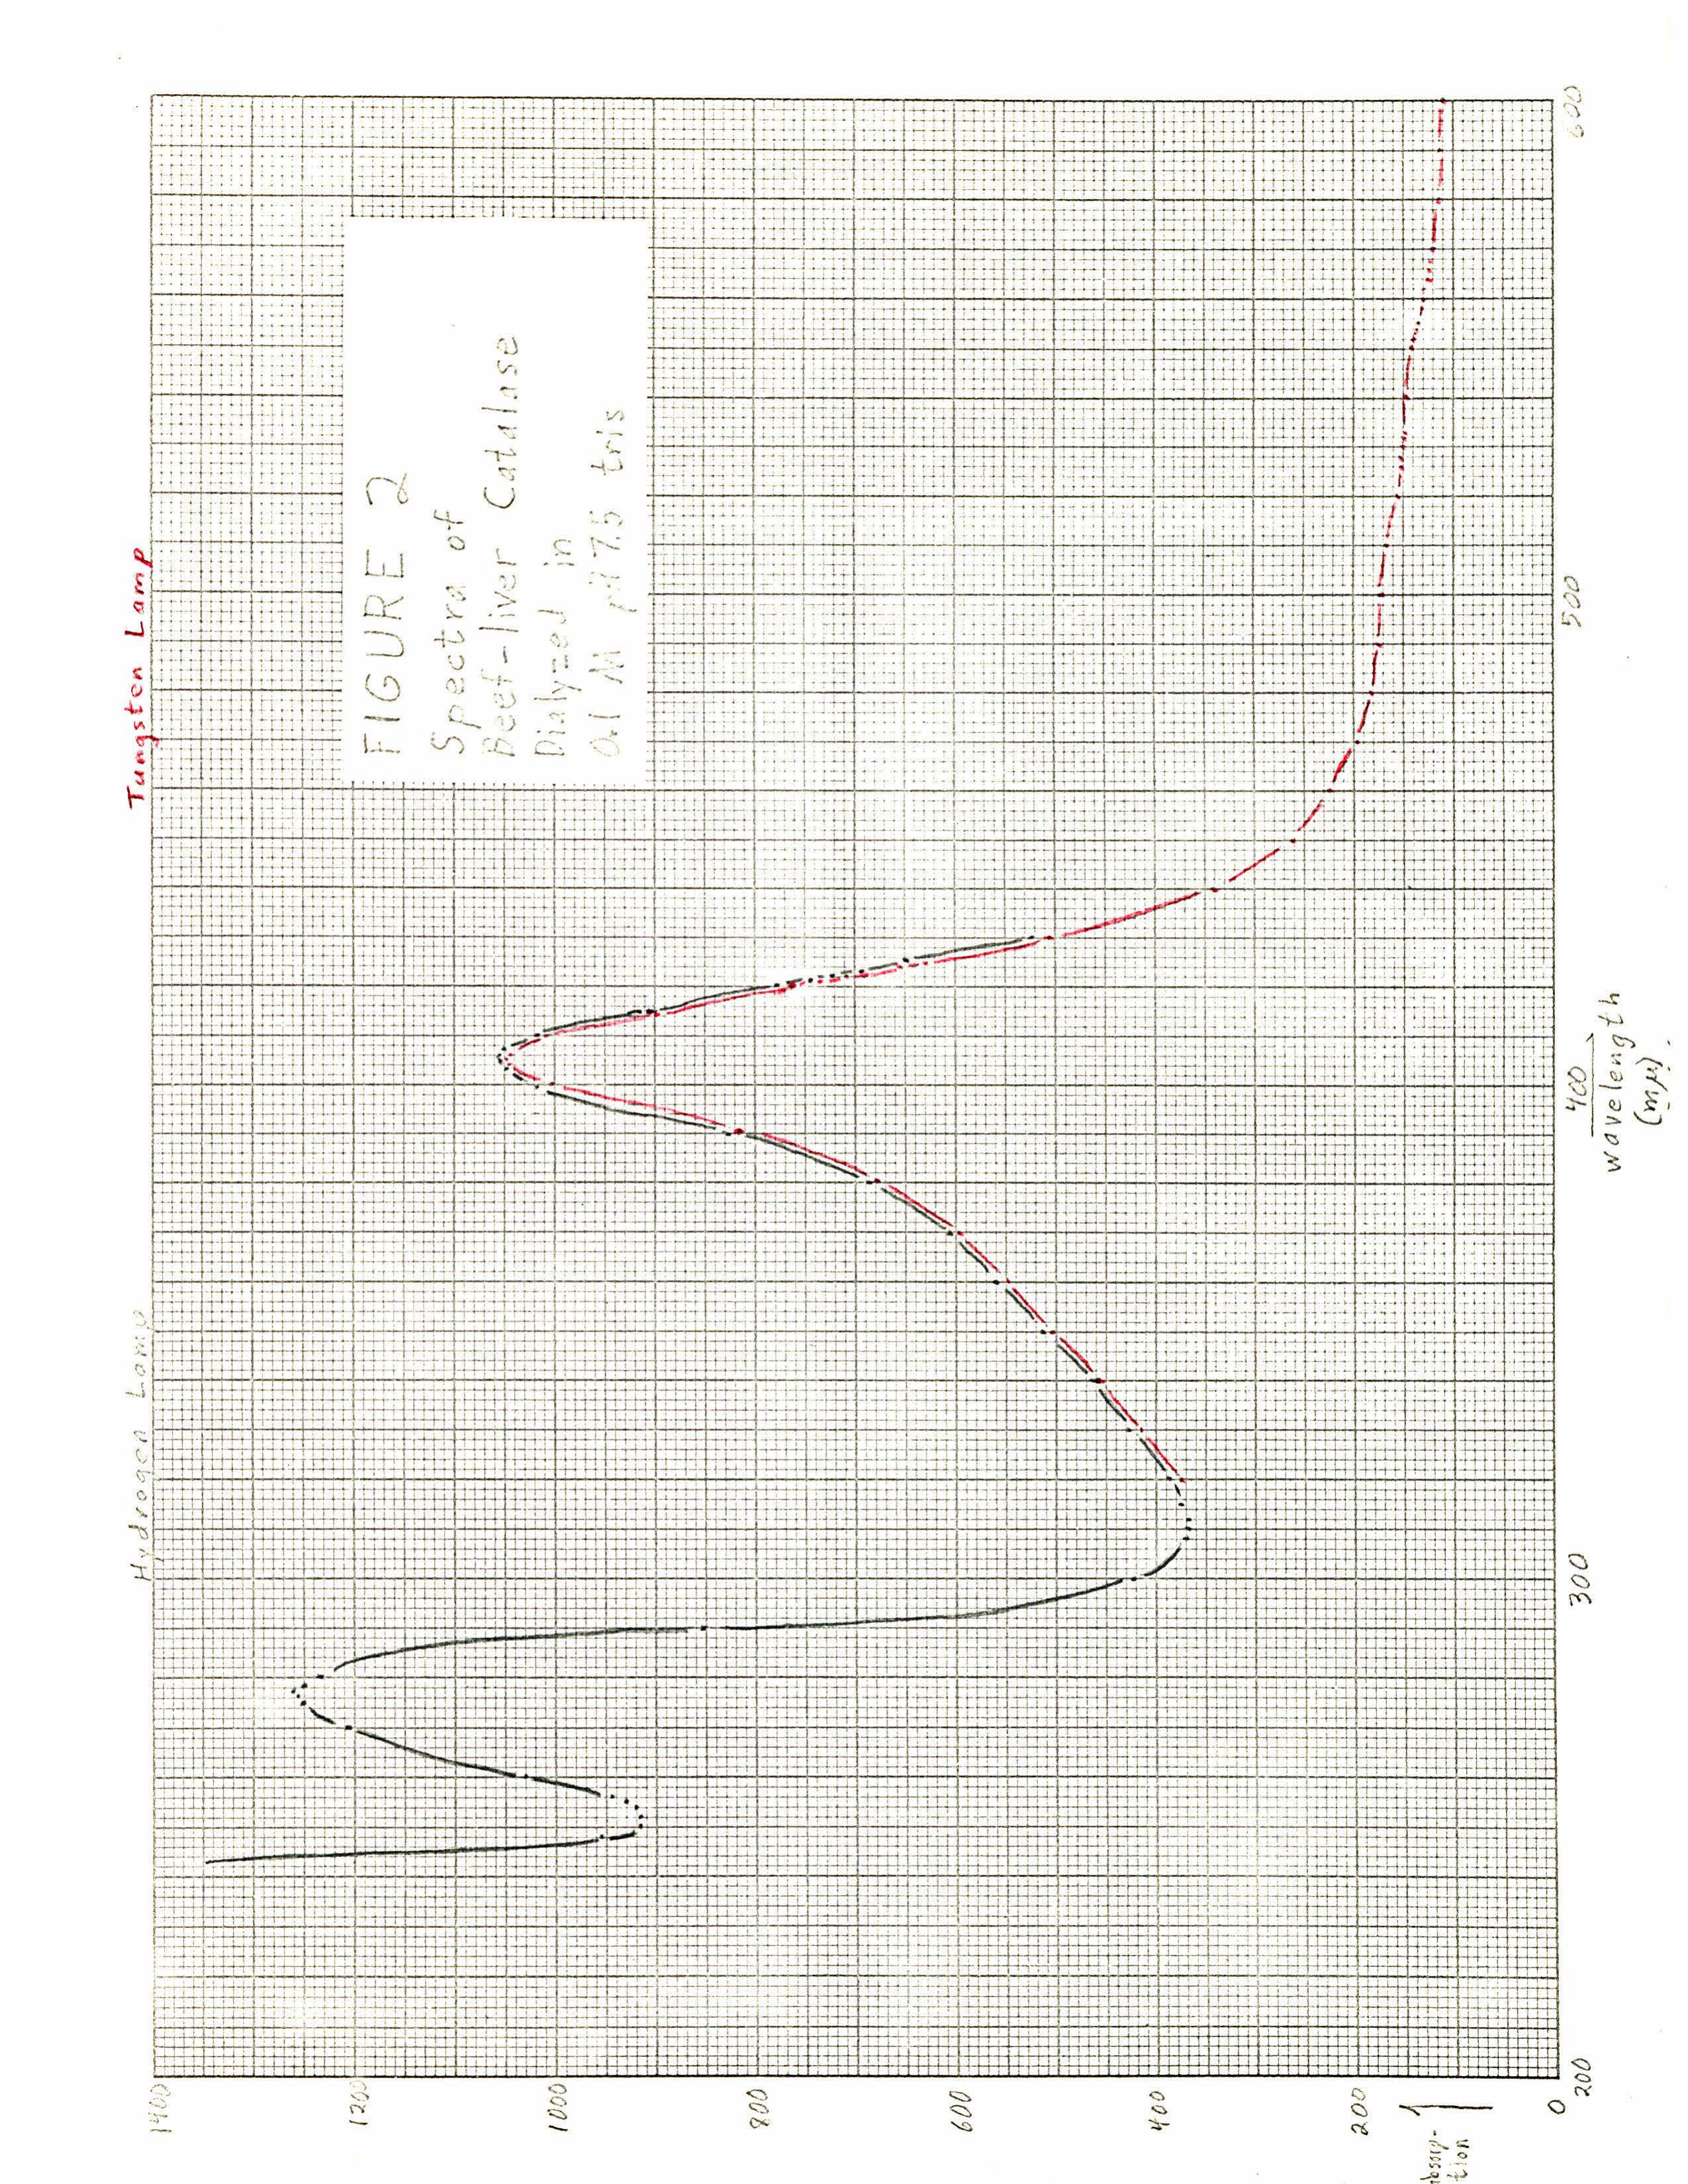 Hydrogen Lamp
Tungsten Lamp
FIGURE 2
Spectra of
Beef-liver Catalase
Dialyzed in
0.1 M pH 7.5 tris
1400
1200
1000
800
600
400
200
0
absorp-
tion
200
300
400
500
600
wavelength
(mμ).